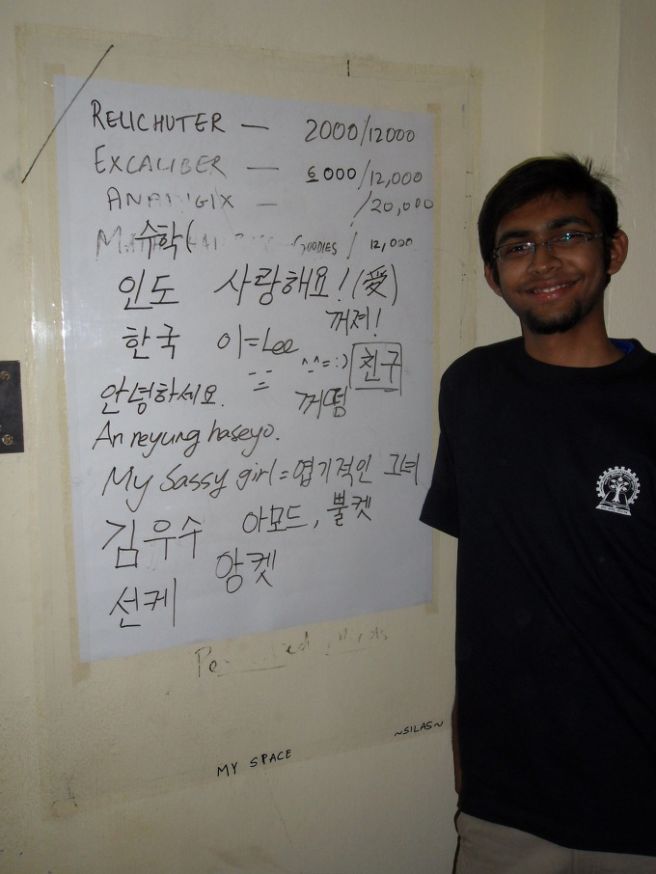 RELICHUTER — 2000/12000
EXCALIBER — 6000/12,000
— /20,000
수학( GOODIES / 12,000
인도 사랑해요! (愛)
꺼져!
한국 이=Lee ^^=:) 친구
안녕하세요. 꺼떰
An neyung haseyo.
My Sassy girl=엽기적인 그녀
김우수 아모드, 뿔켓
선케 앙켓
~SILAS~
MY SPACE